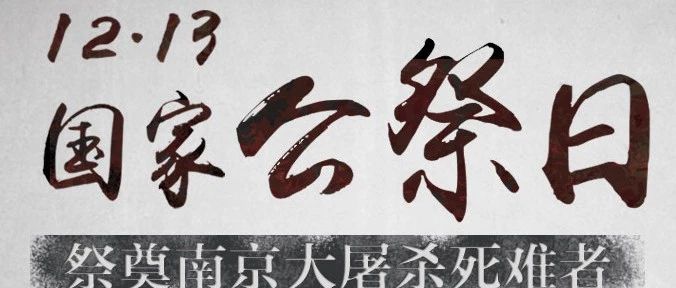 12·13
国家公祭日
祭奠南京大屠杀死难者